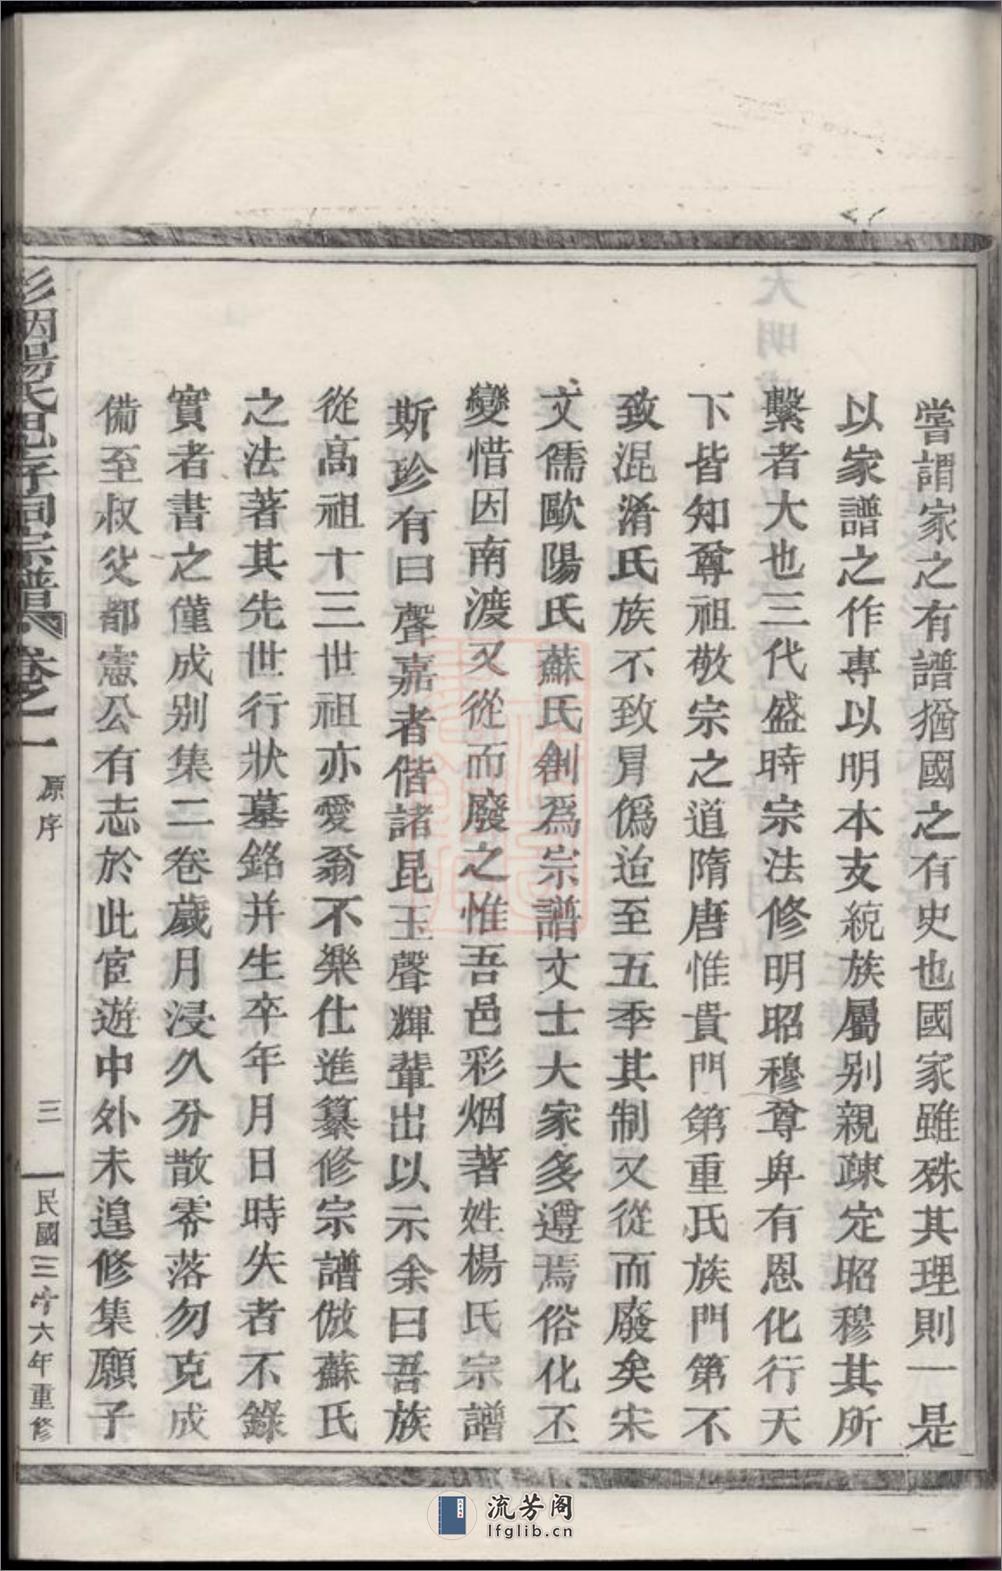 嘗謂家之有譜猶國之有史也國家雖殊其理則一是
以家譜之作專以明本支統族屬别親疎定昭穆其所
繫者大也三代盛時宗法修明昭穆尊卑有恩化行天
下皆知尊祖敬宗之道隋唐惟貴門第重氏族門第不
致混淆氏族不致冐僞迨至五季其制又從而廢矣宋
文儒歐陽氏蘇氏創爲宗譜文士大家多遵焉俗化丕
變惜因南渡又從而廢之惟吾邑彩烟著姓楊氏宗譜
斯珍有曰聲嘉者偕諸昆玉聲輝輩出以示余曰吾族
從高祖十三世祖亦愛翁不樂仕進纂修宗譜倣蘇氏
之法著其先世行狀墓銘并生卒年月日時失者不錄
實者書之僅成别集二卷歲月浸久分散零落勿克成
備至叔父都憲公有志於此宦遊中外未遑修集願子
彩烟楊氏思存祠宗譜 卷之一 原序 三 民國三十六年重修
流芳阁
lfglib.cn